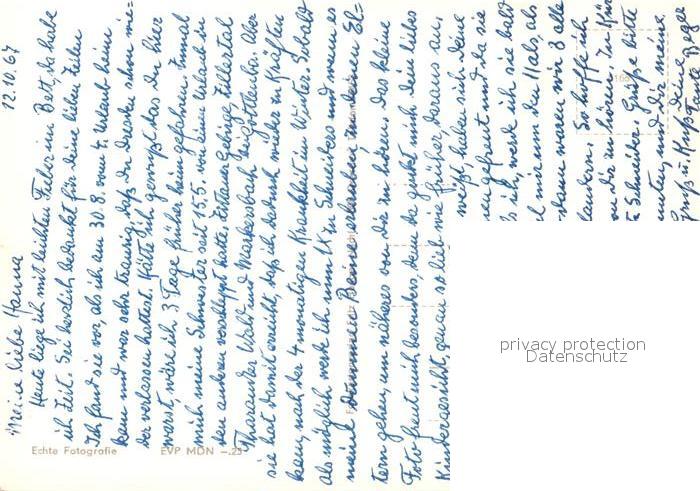 12.10.67
Meine liebe Hanna
Heute liege ich mit leichten Fieber im Bett, da habe
ich Zeit. Sei herzlich bedankt für deine lieben Zeilen
Ich fand sie vor, als ich am 30.8. vom 4. Urlaub heim
kam und war sehr traurig, daß du Dresden schon wie=
der verlassen hattest. Hätte ich gewußt das du hier
warst, wäre ich 3 Tage früher heim gefahren. Zumal
mich meine Schwester seit 15.5. von einem Urlaub in
den anderen verschleppt hatte. Erzgebirge, Zillertal
Tharandter Wald und Markersbach Bergottleuba. Aber
sie hat damit erreicht, daß ich dadurch wieder zu Kräften
kam, nach der 4 monatigen Krankheit im Winter. Sobald
als möglich werde ich zum Schreibers und wenn es
meine dummen Beine erlauben zu deinen El=
tern gehen, um näheres von dir zu hören. Das kleine
Foto freut mich besonders, denn da guckt mich dein liebes
Kindergesicht, genau so lieb wie früher, daraus an.
haben sich deine
gefreut und da sie
ich, werde ich sie bald
mir um den Hals, als
waren wir 3 alle
So hoffe ich
von dir zu hören. In Kür
Schreiber. Grüße bitte
und dir eine
Gruß u Kuß Deine Tante
Echte Fotografie
EVP MDN –.25
privacy protection
Datenschutz